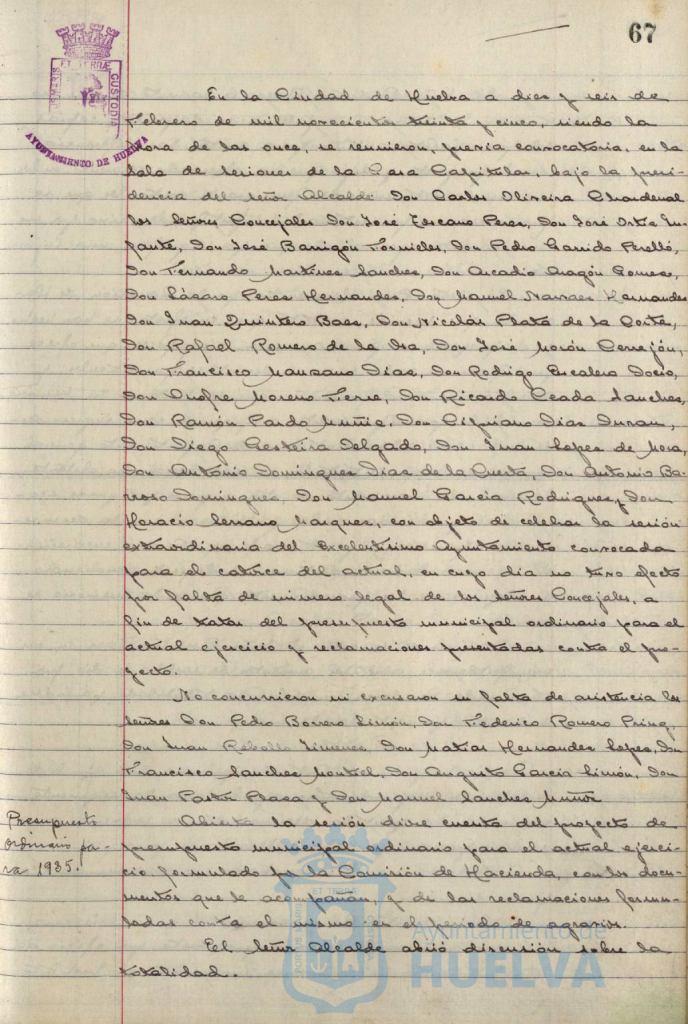 67
ET TERRÆ
CUSTODIA
AYUNTAMIENTO DE HUELVA
En la Ciudad de Huelva a diez y seis de
Febrero de mil novecientos treinta y cinco, siendo la
hora de las once, se reunieron, previa convocatoria, en la
Sala de Sesiones de la Casa Capitular, bajo la presi-
dencia del Señor Alcalde Don Carlos Oliveira Chardenal
los Señores Concejales Don José Toscano Perez, Don José Ortiz In-
fante, Don José Barrigón Fornieles, Don Pedro Garrido Perelló,
Don Fernando Martinez Sanchez, Don Arcadio Aragón Gomez,
Don Lázaro Perez Hernandez, Don Manuel Narvaez Hernandez
Don Juan Quintero Baez, Don Nicolás Plata de la Corte,
Don Rafael Romero de la Osa, Don José Morón Cerrejón,
Don Francisco Manzano Diaz, Don Rodrigo Escalera Docio,
Don Onofre Moreno Don Ricardo Ceada Sanchez,
Don Ramón Pardo Muñiz, Don Cipriano Diaz Duran,
Don Diego Gesteira Delgado, Don Juan Lopez de Mora,
Don Antonio Dominguez Diaz de la Cuesta, Don Antonio Ba-
rroso Dominguez, Don Manuel Garcia Rodriguez, y Don
Horacio Serrano Marquez, con objeto de celebrar la sesión
extraordinaria del Excelentísimo Ayuntamiento convocada
para el catorce del actual, en cuyo dia no tuvo efecto
por falta de número legal de los Señores Concejales, a
fin de tratar del presupuesto municipal ordinario para el
actual ejercicio y reclamaciones presentadas contra el pro-
yecto.
No concurrieron ni excusaron su falta de asistencia los
Señores Don Pedro Borrero Limón, Don Federico Romero
Don Juan Rebollo Jimenez Don Matias Hernandez Lopez, Don
Francisco Sanchez Montiel, Don Augusto Garcia Limón, Don
Juan Pastor Plaza y Don Manuel Sanchez Muñoz
Presupuesto
ordinario pa-
ra 1935.
Abierta la sesión dióse cuenta del proyecto de
presupuesto municipal ordinario para el actual ejerci-
cio formulado por la Comisión de Hacienda, con los docu-
mentos que le acompañan, y de las reclamaciones formu-
ladas contra el mismo en el período de agravios.
El Señor Alcalde abrió discusión sobre la
totalidad.
Ayuntamiento de
HUELVA